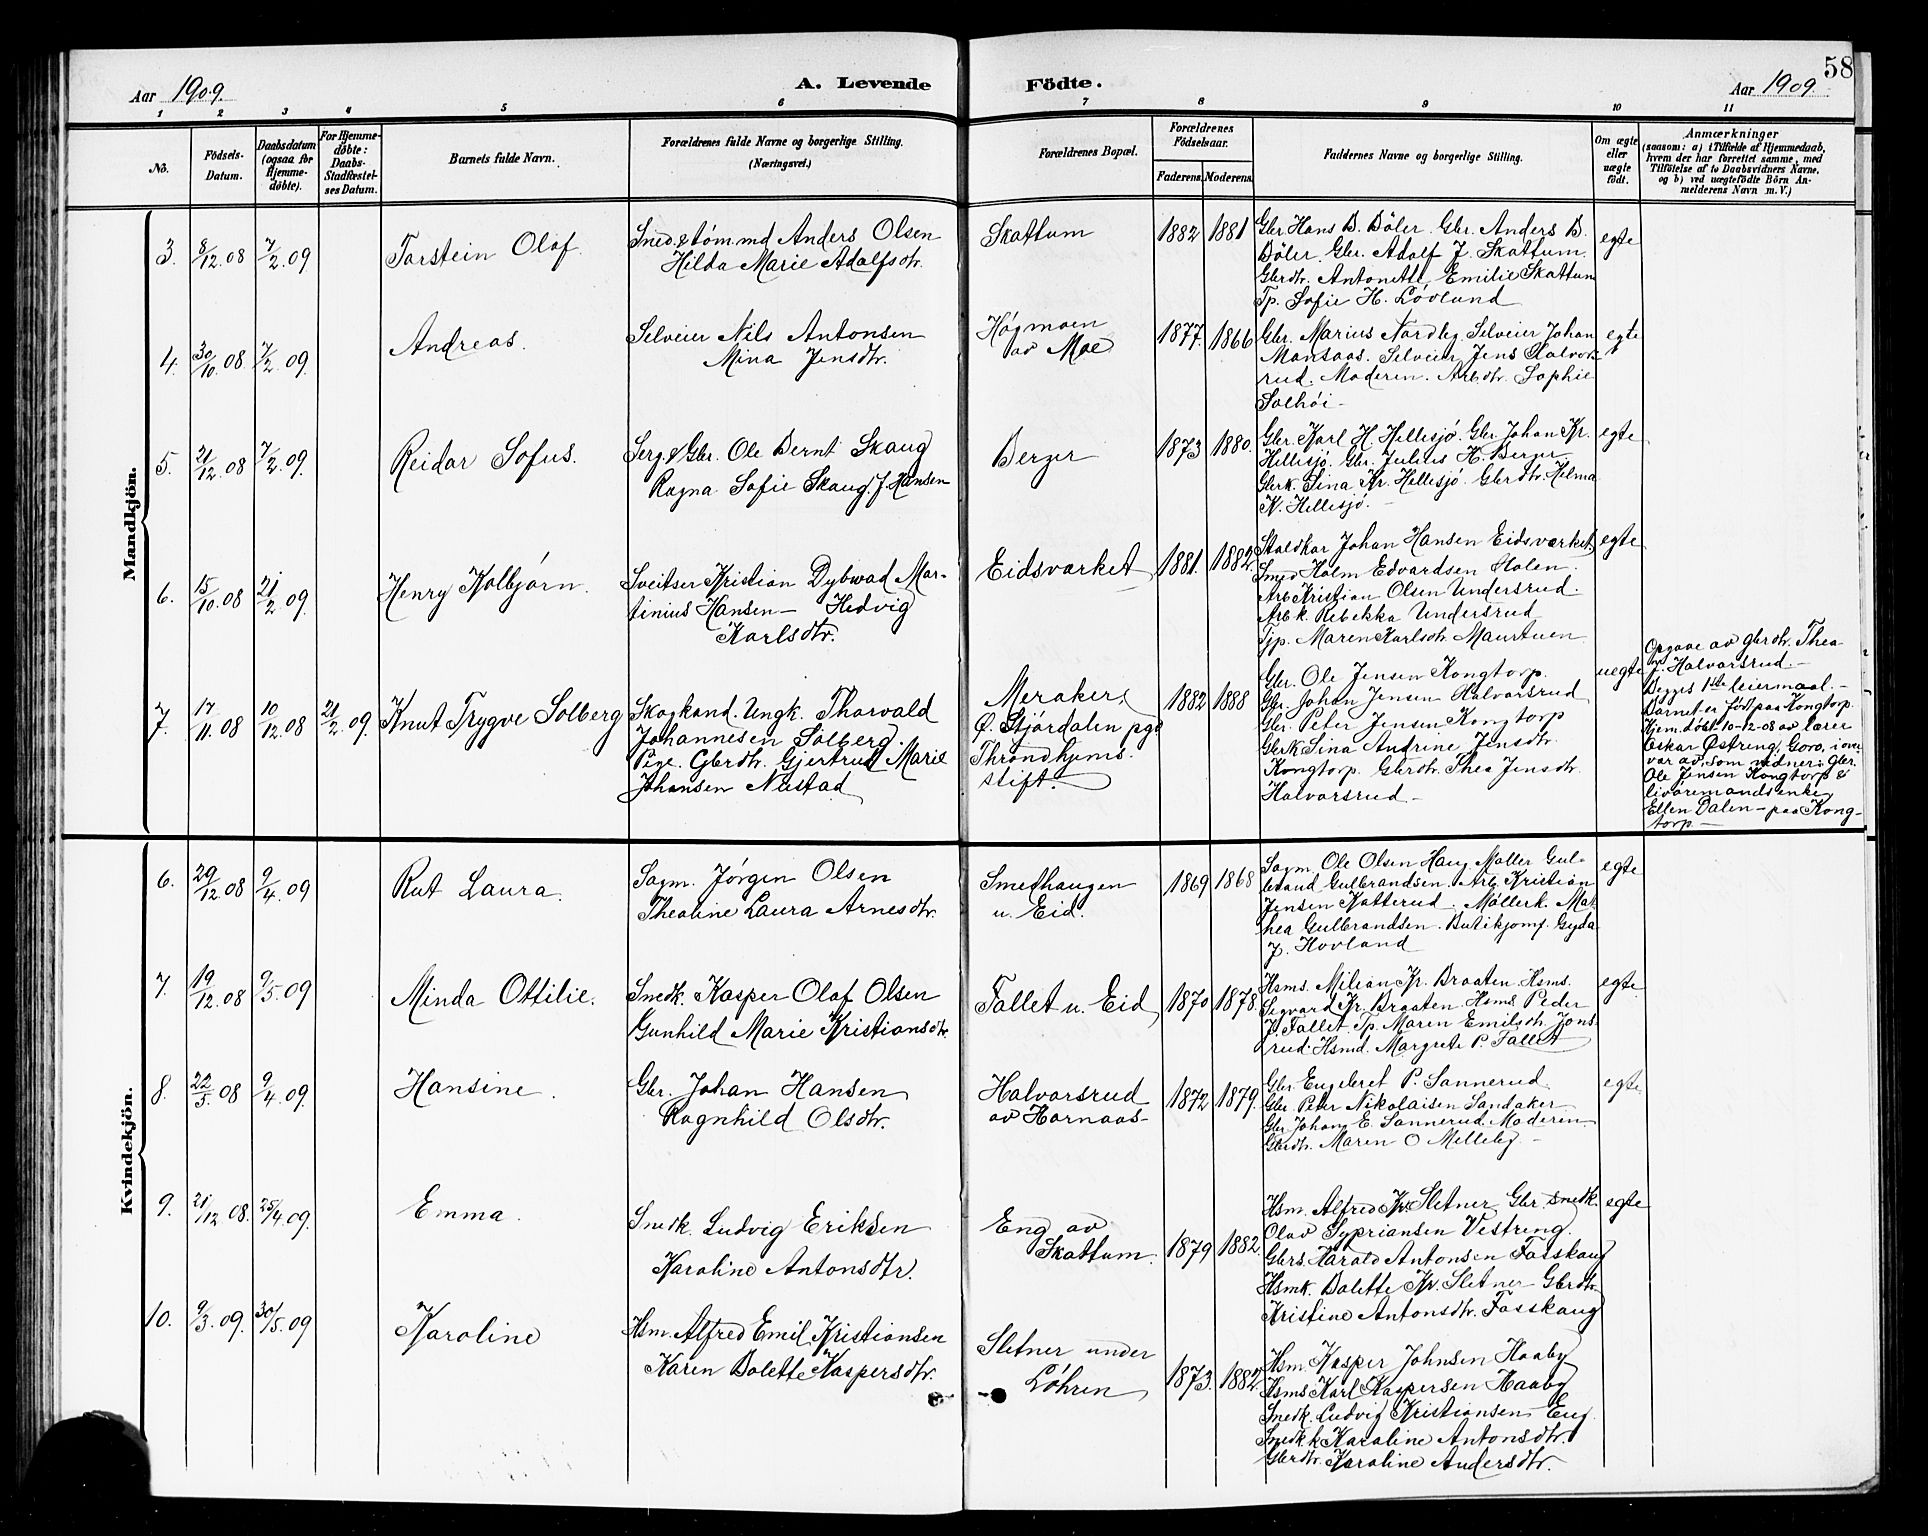 58
Aar 1909. A. Levende Födte. Aar 1909.
1 2 3 4 5 6 7 8 9 10 11
No. Födsels-Datum. Daabsdatum (ogsaa for Hjemmedøbte). For Hjemmedøbte: Daabs-Stadfæstelses Datum. Barnets fulde Navn. Forældrenes fulde Navne og borgerlige Stilling. (Næringsvei.) Forældrenes Bopæl. Forældrenes Födselsaar. Faderens. Moderens. Faddernes Navne og borgerlige Stilling. Om ægte eller uægte født.
Anmærkninger
(saasom: a) i Tilfælde af Hjemmedaab,
hvem der har forrettet samme, med
Tilføielse af to Daabsvidners Navne,
og b) ved uægtefödte Börn Anmelderens Navn m. V.)
Mandkjön.
3. 8/12 08 7/2 09 Torstein Olaf.
Sned. & tøm.md Anders Olsen
Hilda Marie Adolfsdtr.
Skattum 1882 1881
Gbr. Hans B. Böler. Gbr. Anders B.
Böler. Gbr. Adolf J. Skattum.
Gbrdtr. Antonette Emilie Skattum
Tp. Sofie H. Lövlund
egte
4. 30/10 08 7/2 09. Andreas.
Selveier Nils Antonsen
Mina Jensdtr.
Høgmoen
av Moe
1877. 1866
Gbr. Marius Nordby Selveier Johan
Mansaas. Selveier Jens Halvor-
rud. Moderen. Arb.dtr. Sophie
Solhöi -
egte
5. 21/12 08 7/2 09. Reidar Sofus.
Serg. & Gbr. Ole Bernt Skaug
Ragna Sofie Skaug f. Hansen
Berger 1873 1880.
Gbr. Karl H. Hellesjö. Gbr. Johan Kr.
Hellesjö. Gbr. Julius H. Berger
Gbrk. Lina Kr. Hellesjö. Gbrdtr. Helma
K. Hellesjö. -
egte
6. 15/10 08 21/2 09. Henry Kolbjörn.
Sveitser Kristian Dybwad Mar-
tinius Hansen - Hedvig
Karlsdtr.
Eidsverket 1881. 1882.
Staldkar Johan Hansen Eidsverket.
Smed Holm Edvardsen Holen.
Arb Kristian Olsen Undersrud.
Arb k. Rebekka Undersrud
Tjp. Maren Karlsdtr. Maurtuen
egte
7. 17/11 08 10/12 08 21/2 09. Knut Trygve Solberg
Skogkand. Ungk. Thorvald
Johannesen Solberg.
Pige. Gbrdtr. Gjertrud Marie
Johansen Nustad
Meraker,
Ø. Stjördalen pgd
Throndhjems
stift.
1882 1888
Gbr. Ole Jensen Kongtorp.
Gbr. Johan Jensen Halvorsrud
Gbr. Peter Jensen Kongtorp
Gbrk. Lina Andrine Jensdtr.
Kongtorp. Gbrdtr. Thea Jensdtr.
Halvorsrud -
uegte
Opgave av gbrdtr. Thea
J. Halvorsrud. -
Begges 1ste leiermaal. -
Barnet er født paa Kongtorp.
Hjem.døbt 10-12-08 av lærer
Oskar Østreng, Goro, i over
vær av, som vidner: Gbr.
Ole Jensen Kongtorp &
livöremandsenke
Ellen Dalen - paa Kong-
torp -
Kvindekjön.
6. 29/12 08 9/4 09 Rut Laura.
Sagm. Jörgen Olsen
Thealine Laura Arnesdtr.
Smedhaugen
u. Eid.
1869 1868
Sagm. Ole Olsen Haug Møller Gul-
brand Gulbrandsen. Arb. Kristian
Jensen Katterud. Møllerk. Mat-
hea Gulbrandsen. Butikjomf. Gyda
J. Hovland
egte
7. 19/12 08 9/5 09 Minda Ottilie.
Snedk. Kasper Olaf Olsen
Gunhild Marie Kristiansdtr.
Fallet u. Eid 1870 1878.
Hsms. Milian Kr. Braaten. Hsms.
Segvard Kr. Braaten. Hsms Peder
J. Fallet. Tp. Maren Emilsdtr. Jons-
rud. Hsmd. Margrete P. Fallet
egte.
8. 22/5. 08 9/4 09. Hansine.
Gbr. Johan Hansen
Ragnhild Olsdtr.
Halvorsrud
av Hornaas-
1872 1879.
Gbr. Engebret P. Sannerud.
Gbr. Peter Nikolaisen Sandaker
Gbr. Johan E. Sannerud. Moderen.
Gbrdtr. Maren O Melleby -
egte.
9. 21/12 08. 25/4 09. Emma.
Snedk. Ludvig Eriksen
Karoline Antonsdtr.
Eng av
Skattum.
1879 1882.
Hsm. Alfred Kr. Sletner Gbr. snedk.
Olav Sypriansen Vestreng.
Gbrs. Harald Antonsen Fosskaug
Hsmk. Bolette Kr. Sletner Gbrdtr.
Kristine Antonsdtr. Fosskaug
egte
10. 9/3. 09. 30/5 09 Karoline
Hsm. Alfred Emil Kristiansen
Karen Bolette Kaspersdtr.
Sletner under
Löhren
1873. 1882.
Hsm. Kasper Johnsen Haaby
Hsms Karl Kaspersen Haaby
Snedk. Ludvig Kristiansen Eng.
Snedk.k Karoline Antonsdtr.
Gbrdtr. Karoline Andersdtr.